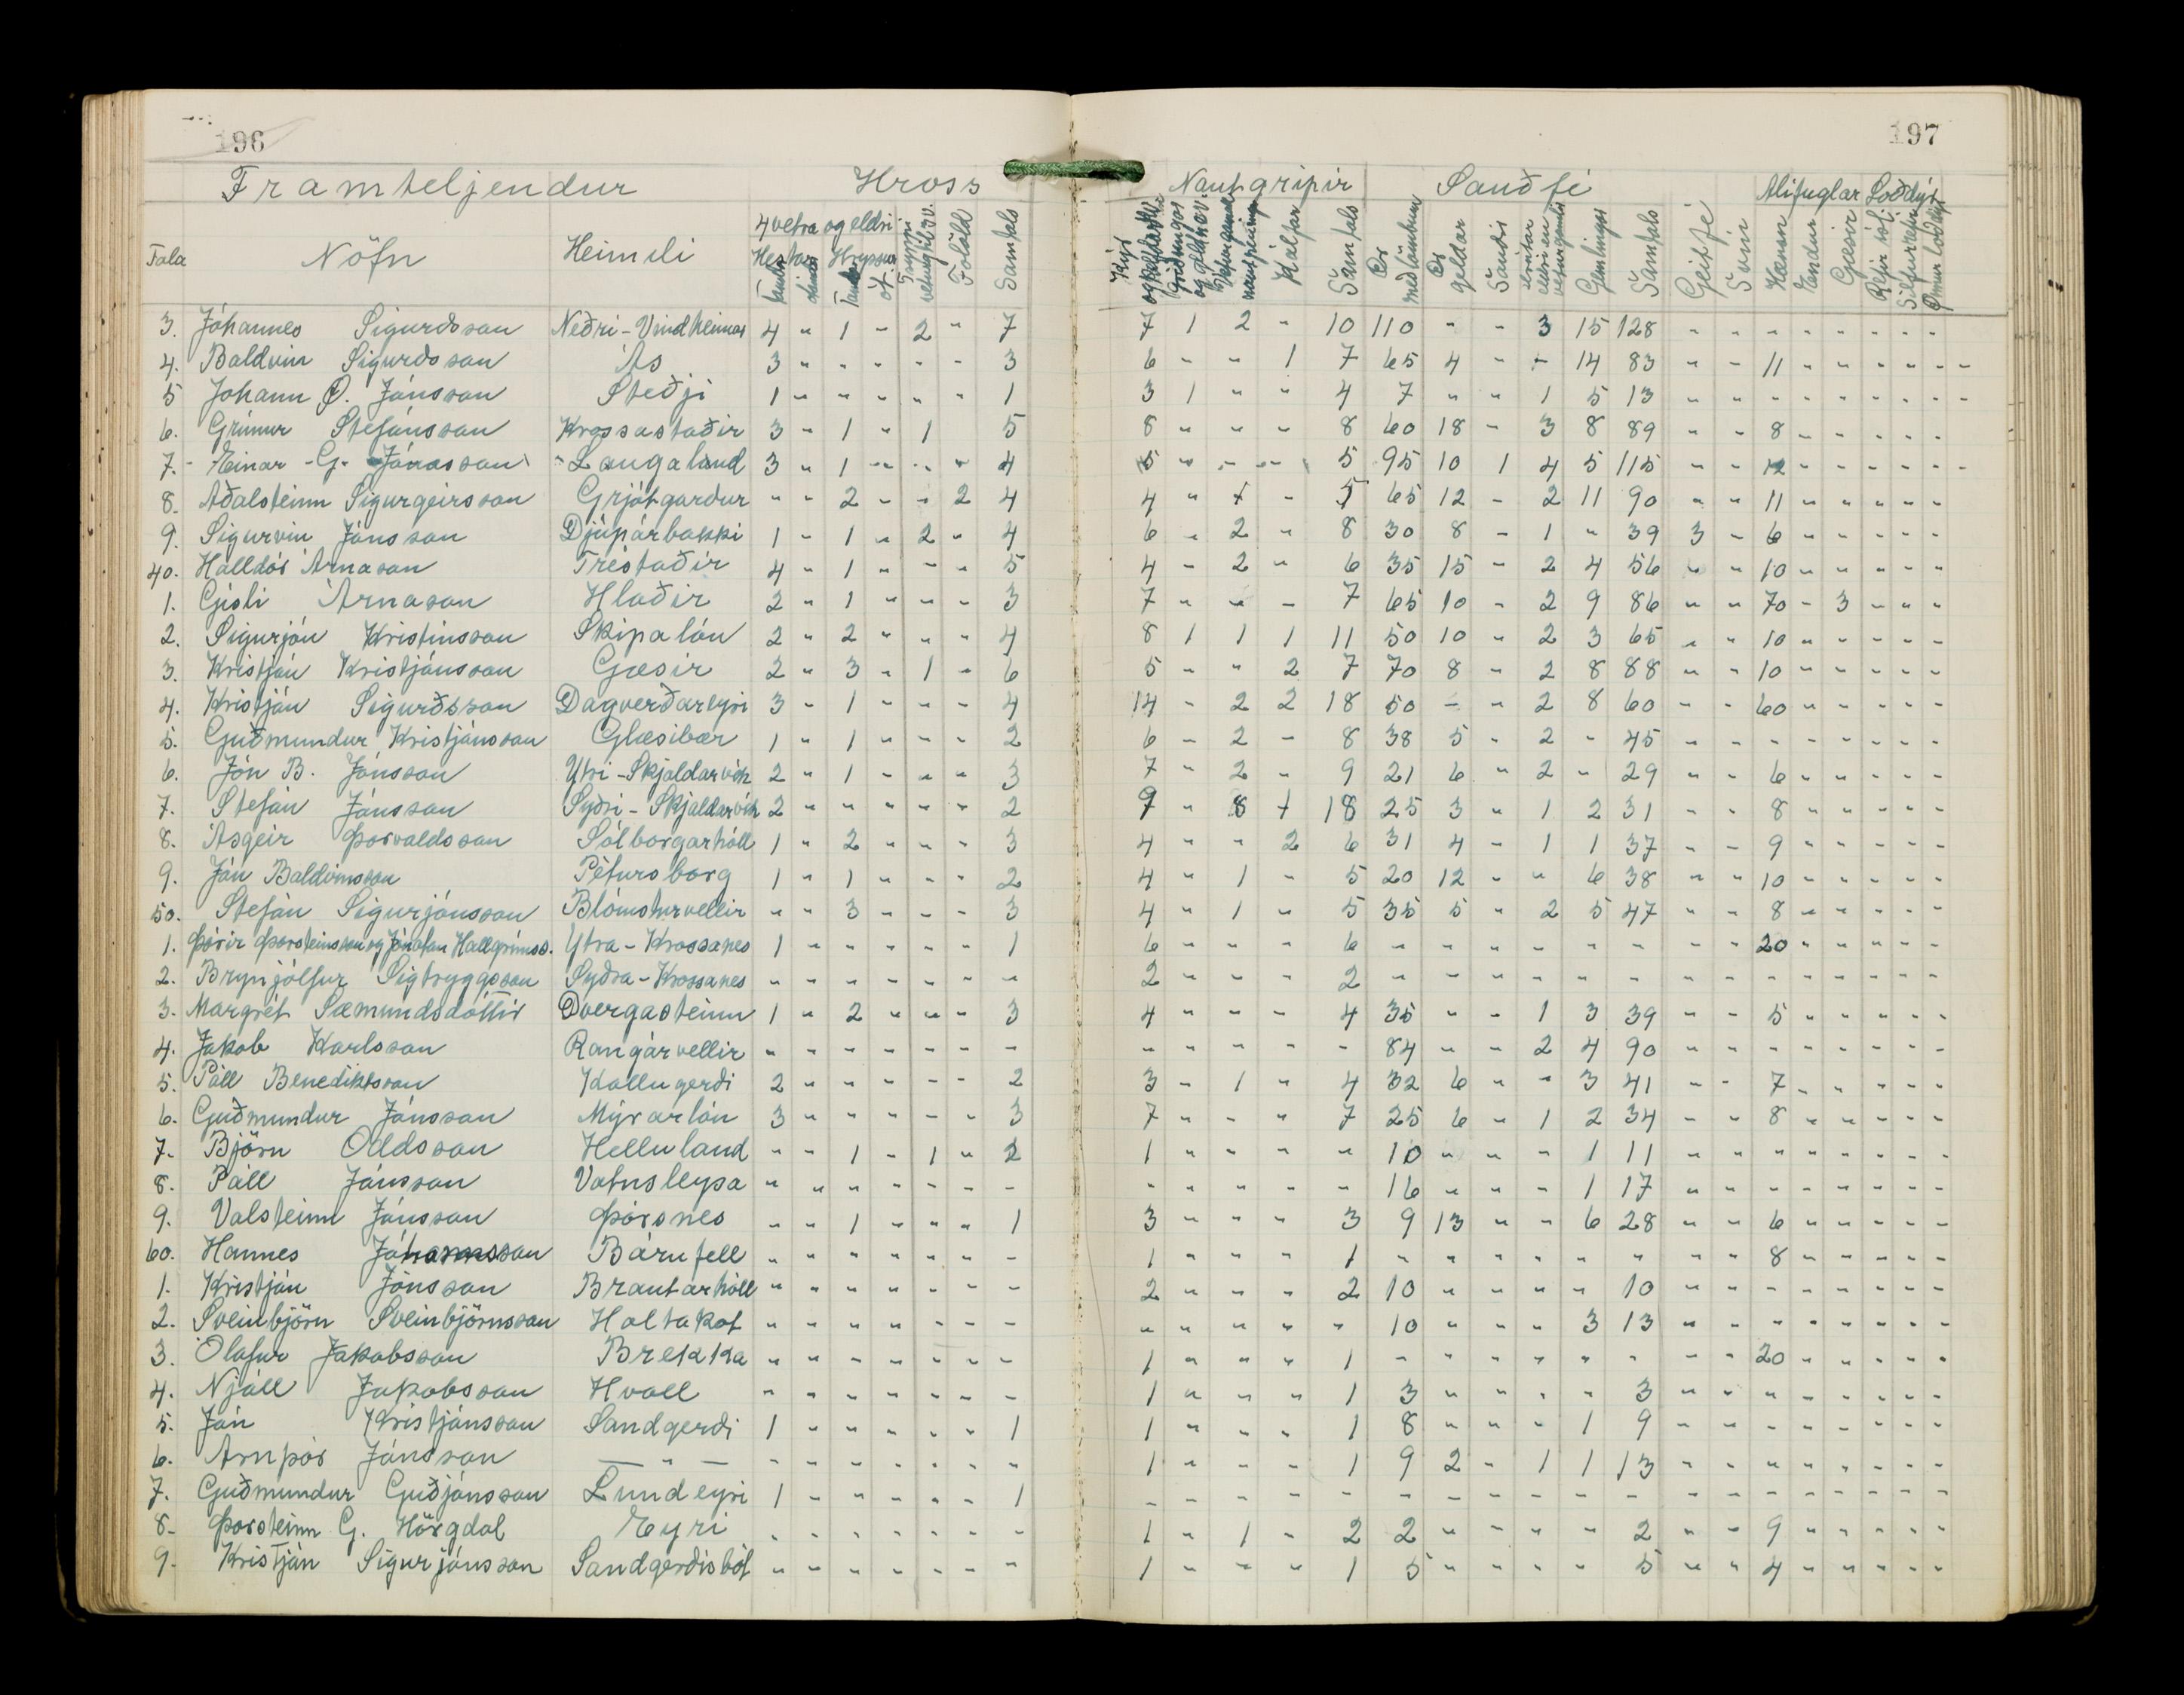 196
197
Framteljendur Hross Nautgripir Sauðfé Alifuglar Loðdýr
4 vetra og eldri
Tala Nöfn Heimili Hestar Hryssur Folöld Samtals Kýr Kálfar Samtals Ær með lömbum Ær geldar Sauðir Gemlingar Samtals Geitfé Svín Hænsn Endur Gæsir
3. Jóhannes Sigurðsson Neðri-Vindheimar 4 " 1 - 2 " 7 7 1 2 - 10 110 - - 3 15 128 - - - - - - - -
4. Baldvin Sigurðsson Ás 3 - - - - - 3 6 - - 1 7 65 4 - - 14 83 - - 11 - - - - - -
5 Jóhann Ó. Jónsson Steðji 1 - - - - - 1 3 1 " " 4 7 " " 1 5 13 - - - - - - - - -
6. Grímur Stefánsson Krossastaðir 3 - 1 - 1 5 8 - - - 8 60 18 - 3 8 89 - - 8 - - - - -
7. Einar G. Jónasson Laugaland 3 - 1 - - - 4 5 - - - 5 95 10 1 4 5 115 - - 12 - - - - - -
8. Aðalsteinn Sigurgeirsson Grjótgarður " " 2 - - 2 4 4 " 1 - 5 65 12 - 2 11 90 " " 11 - - - - -
9. Sigurvin Jónsson Djúpárbakki 1 - 1 - 2 - 4 6 - 2 " 8 30 8 - 1 - 39 3 - 6 - - - - -
40. Halldór Árnason Tréstaðir 4 - 1 - - - 5 4 - 2 - 6 35 15 - 2 4 56 - - 10 - - - - -
1. Gísli Árnason Hlaðir 2 - 1 - - - 3 7 - - - 7 65 10 - 2 9 86 - - 70 - 3 - - -
2. Sigurjón Kristinsson Skipalón 2 - 2 - - - 4 8 1 1 1 11 50 10 - 2 3 65 - - 10 - - - - -
3. Kristján Kristjánsson Gæsir 2 - 3 - 1 - 6 5 - - 2 7 70 8 - 2 8 88 - - 10 - - - - -
4. Kristján Sigurðsson Dagverðareyri 3 - 1 - - - 4 14 - 2 2 18 50 - - 2 8 60 - - 60 - - - - -
5. Guðmundur Kristjánsson Glæsibær 1 - 1 - - - 2 6 - 2 - 8 38 5 - 2 - 45 - - - - - - - -
6. Jón B. Jónsson Ytri-Skjaldarvík 2 - 1 - - - 3 7 - 2 - 9 21 6 - 2 - 29 - - 6 - - - - -
7. Stefán Jónsson Syðri-Skjaldarvík 2 - - - - - 2 9 - 8 1 18 25 3 - 1 2 31 - - 8 - - - - -
8. Ásgeir Þorvaldsson Sólborgarhóll 1 - 2 - - - 3 4 - - 2 6 31 4 - 1 1 37 - - 9 - - - - -
9. Jón Baldvinsson Pétursborg 1 - 1 - - - 2 4 - 1 - 5 20 12 - - 6 38 - - 10 - - - - -
50. Stefán Sigurjónsson Blómsturvellir - - 3 - - - 3 4 - 1 - 5 35 5 - 2 5 47 - - 8 - - - - -
1. Þórir Þorsteinsson og Jónatan Hallgrímss. Ytra-Krossanes 1 - - - - - 1 6 - - - 6 - - - - - - - - 20 - - - - -
2. Brynjólfur Sigtryggsson Syðra-Krossanes - - - - - - - 2 - - - 2 - - - - - - - - - - - - - -
3. Margrét Sæmundsdóttir Dvergasteinn 1 - 2 - - - 3 4 - - - 4 35 - - 1 3 39 - - 5 - - - - -
4. Jakob Karlsson Rangárvellir - - - - - - - - - - - - 84 - - 2 4 90 - - - - - - - -
5. Páll Benediktsson Kollugerði 2 - - - - - 2 3 - 1 - 4 32 6 - - 3 41 - - 7 - - - - -
6. Guðmundur Jónsson Mýrarlón 3 - - - - - 3 7 - - - 7 25 6 - 1 2 34 - - 8 - - - - -
7. Björn Oddsson Helluland - - 1 - 1 - 2 1 - - - - 10 - - - 1 11 - - - - - - - -
8. Páll Jónsson Vatnsleysa - - - - - - - - - - - - 16 - - - 1 17 - - - - - - - -
9. Valsteinn Jónsson Þórsnes - - 1 - - - 1 3 - - - 3 9 13 - - 6 28 - - 6 - - - - -
60. Hannes Jóhannsson Bárufell - - - - - - - 1 - - - 1 - - - - - - - - 8 - - - - -
1. Kristján Jónsson Brautarhóll - - - - - - - 2 - - - 2 10 - - - - 10 - - - - - - - -
2. Sveinbjörn Sveinbjörnsson Holtakot - - - - - - - - - - - - 10 - - - 3 13 - - - - - - - -
3. Ólafur Jakobsson Brekka - - - - - - - 1 - - - 1 - - - - - - - - 20 - - - - -
4. Njáll Jakobsson Hvoll - - - - - - - 1 - - - 1 3 - - - - 3 - - - - - - - -
5. Jón Kristjánsson Sandgerði 1 - - - - - 1 1 - - - 1 8 - - - 1 9 - - - - - - - -
6. Arnþór Jónsson — " — - - - - - - - 1 - - - 1 9 2 - 1 1 13 - - - - - - - -
7. Guðmundur Guðjónsson Lundeyri 1 - - - - - 1 - - - - - - - - - - - - - - - - - - -
8. Þorsteinn G. Hörgdal Eyri - - - - - - - 1 - 1 - 2 2 - - - - 2 - - 9 - - - - -
9. Kristján Sigurjónsson Sandgerðisbót - - - - - - - 1 - - - 1 5 - - - - 5 - - 4 - - - - -